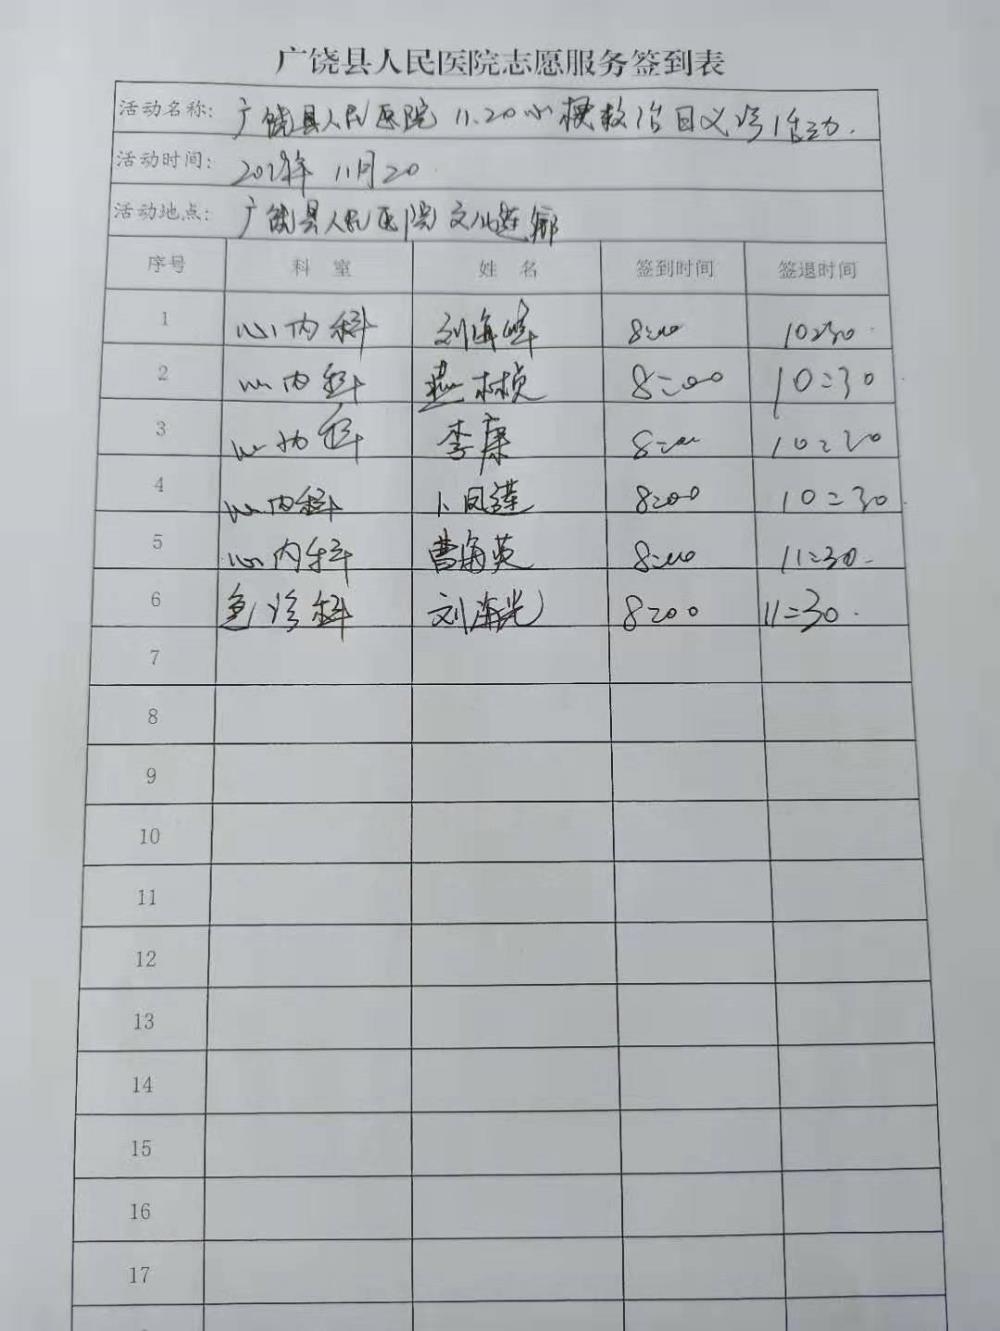 广饶县人民医院志愿服务签到表
活动名称: 广饶县人民医院 11.20心梗救治日义诊活动.
活动时间: 11月20
活动地点: 广饶县人民医院文化连廊
序号 科 室 姓 名 签到时间 签退时间
1 心内科 刘海峰 8:00 10:30
2 心内科 燕林桢 8:00 10:30
3 心内科 李康 8:00 10:30
4 心内科 8:00 10:30
5 心内科 曹海英 8:00 11:30
6 急诊科 刘海光 8:00 11:30
7
8
9
10
11
12
13
14
15
16
17